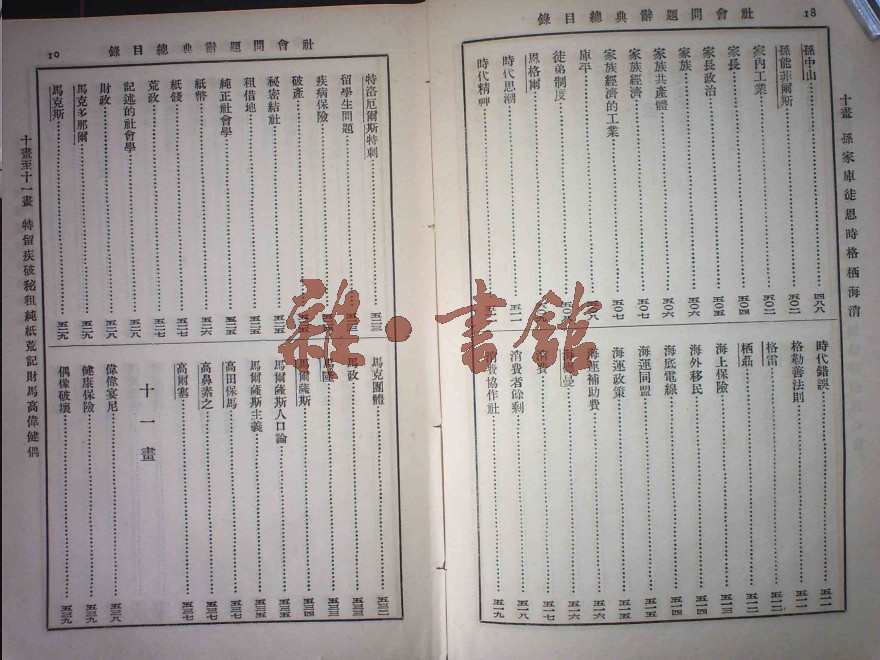 社會問題辭典總目錄
18
十畫 孫家庫徒恩時格栖海消
孫中山 四九八
孫能菲爾斯 五〇二
家內工業 五〇二
家長 五〇四
家長政治 五〇五
家族 五〇六
家族共產體 五〇六
家族經濟 五〇七
家族經濟的工業 五〇七
庫平
徒弟制度
恩格爾
時代思潮 五一一
時代精神
時代錯誤 五一一
格勒善法則 五一一
格雷 五一二
栖聶 五一二
海上保險 五一三
海外移民 五一四
海底電線 五一四
海運同盟 五一五
海運政策 五一五
海運補助費 五一六
五一六
消費 五一七
消費者餘剩 五一八
消費協作社 五一九
社會問題辭典總目錄
19
十畫至十一畫 特留疾破秘租純紙荒記財馬高偉健偶
特洛厄爾斯特刺 五二三
留學生問題
疾病保險
破產
秘密結社 五二五
租借地 五二五
純正社會學 五二五
紙幣 五二六
紙錢 五二七
荒政 五二七
記述的社會學 五二八
財政 五二八
馬克多那爾 五二九
馬克斯 五二九
馬克團體 五三二
馬政 五三三
五三三
馬爾薩斯 五三四
馬爾薩斯人口論 五三五
馬爾薩斯主義 五三五
高田保馬 五三七
高鼻素之 五三七
高爾塞 五三七
十一畫
偉偉宴尼 五三八
健康保險 五三九
偶像破壞 五三九
雜·書館